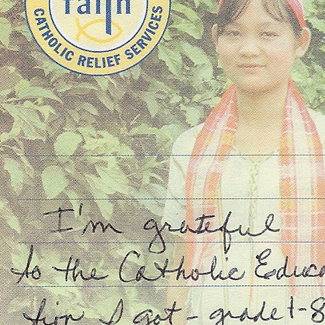 faith
CATHOLIC RELIEF SERVICES
I'm grateful
to the Catholic Educa
tion I got - grade 1-8